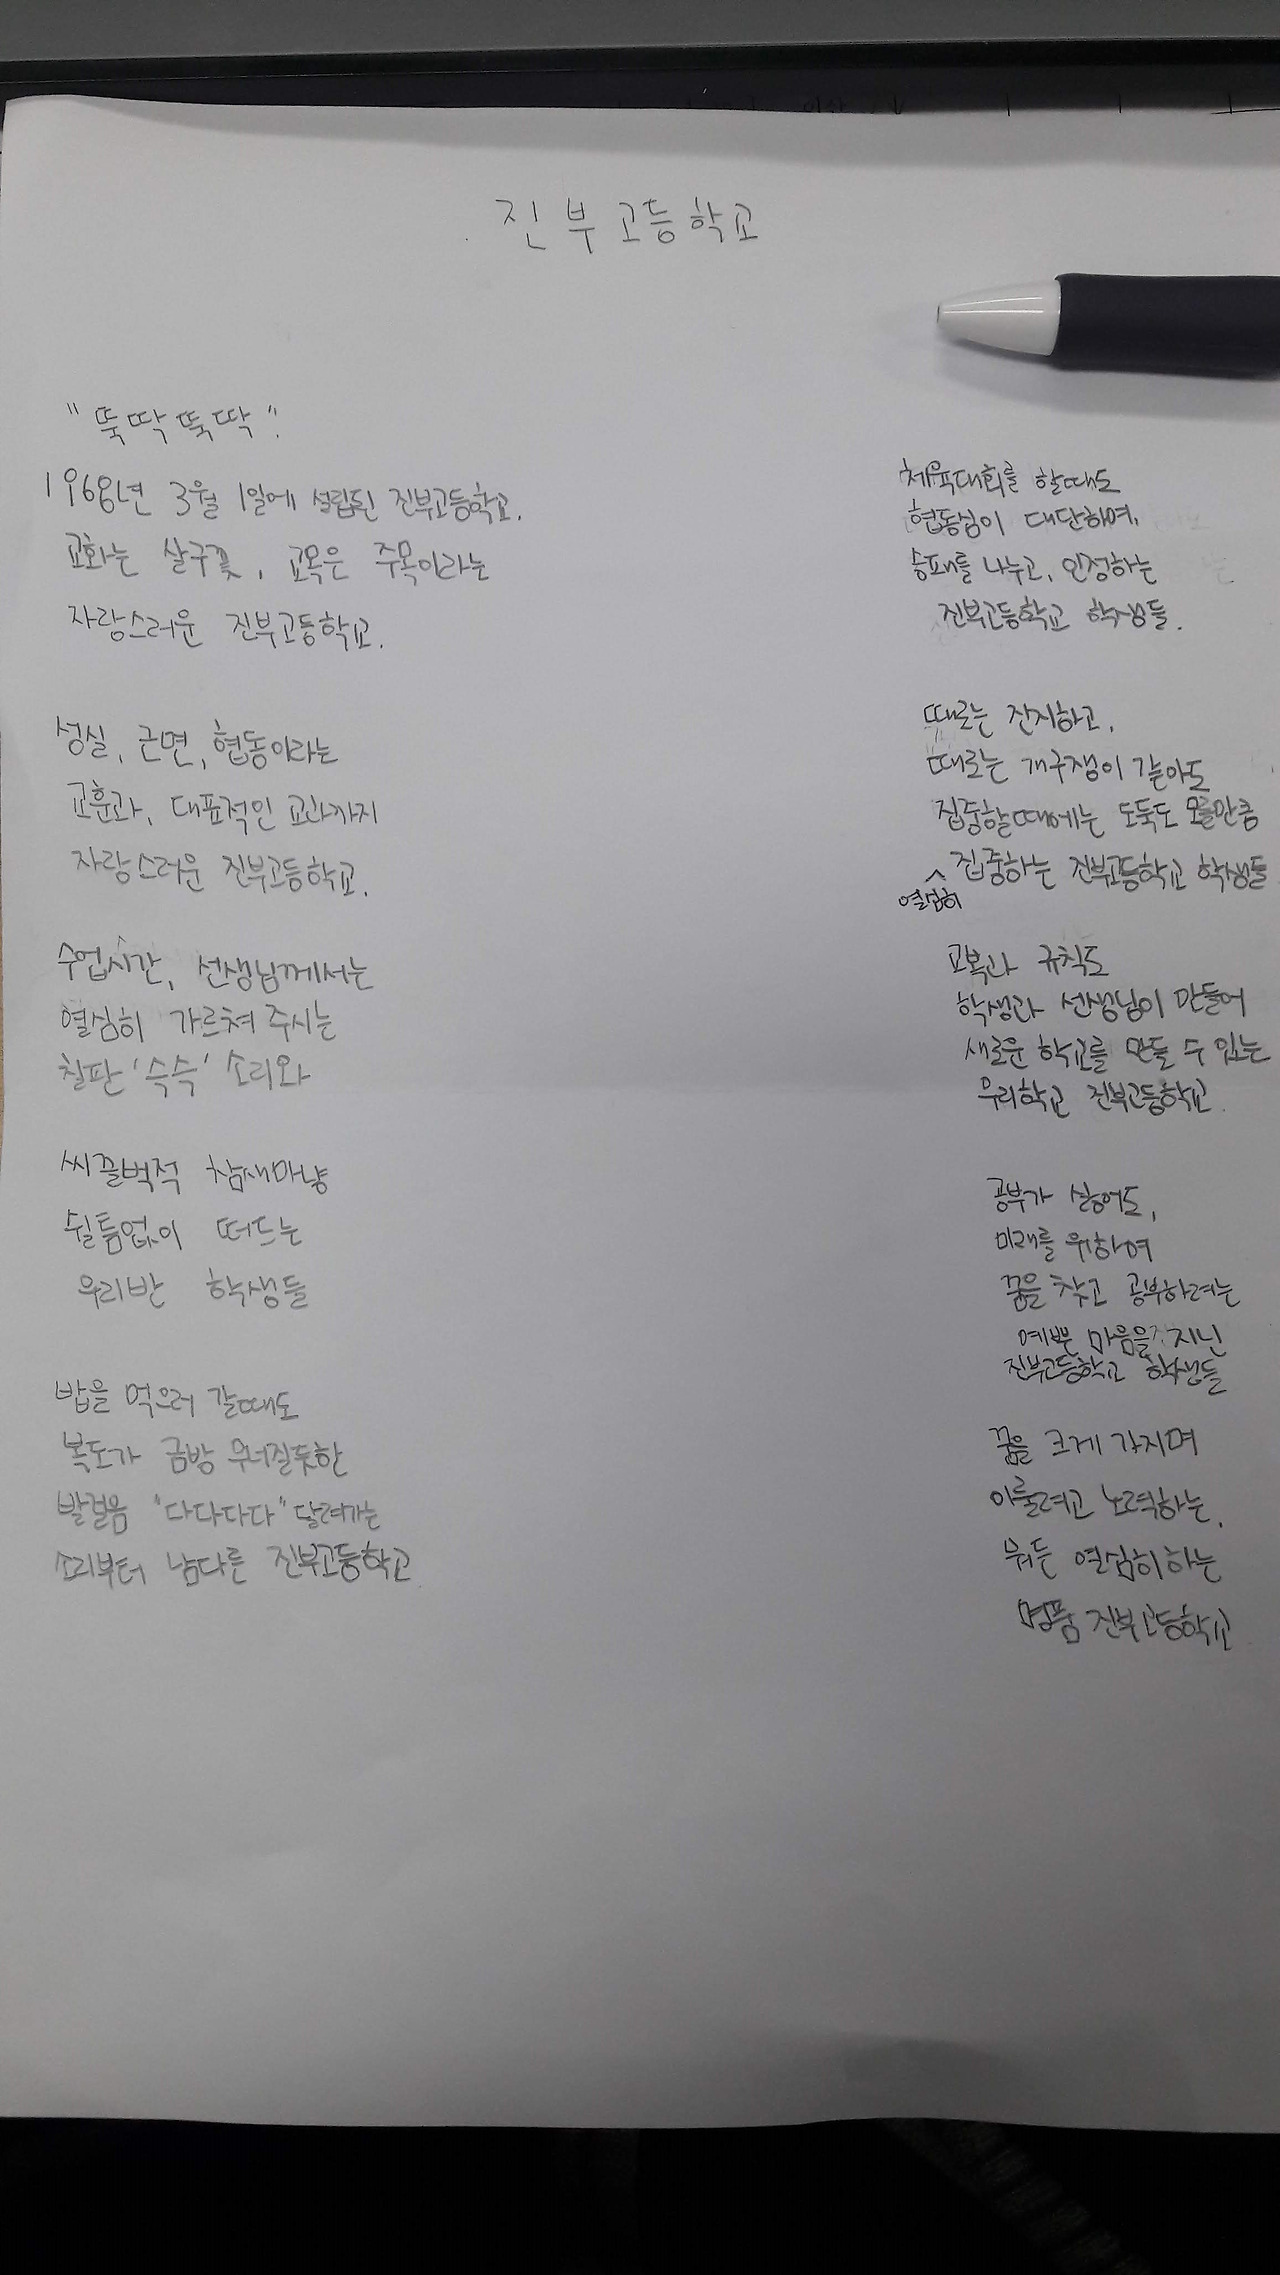 진부고등학교
"뚝딱뚝딱".
1968년 3월 1일에 설립된 진부고등학교.
교화는 살구꽃, 교목은 주목이라는
자랑스러운 진부고등학교.
성실, 근면, 협동이라는
교훈과, 대표적인 교과까지
자랑스러운 진부고등학교.
수업시간, 선생님께서는
열심히 가르쳐 주시는
칠판 '슥슥' 소리와
씨끌벅적 참새마냥
쉴틈없이 떠드는
우리반 학생들
밥을 먹으러 갈때도
복도가 금방 무너질듯한
발걸음 "다다다다" 달려가는
소리부터 남다른 진부고등학교
체육대회를 할때도
협동심이 대단하며,
승패를 나누고, 인정하는
진부고등학교 학생들.
때로는 진지하고,
때로는 개구쟁이 같아도
집중할때에는 도둑도 모를만큼
열심히 집중하는 진부고등학교 학생들
교복과 규칙도
학생과 선생님이 만들어
새로운 학교를 만들 수 있는
우리학교 진부고등학교.
공부가 싫어도,
미래를 위하여
꿈을 찾고 공부하려는
예쁜 마음을 지닌
진부고등학교 학생들
꿈을 크게 가지며
이룰려고 노력하는,
뭐든 열심히하는
명품 진부고등학교